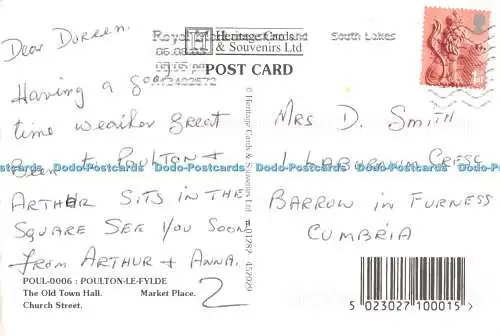 Dear Doreen.
Having a good
time weather great
Been to Poulton &
Arthur sits in the
square see you soon
from Arthur & Anna.
POUL-0006 : POULTON-LE-FYLDE
The Old Town Hall. Market Place.
Church Street.
2
H Heritage Cards
& Souvenirs Ltd
POST CARD
Royal
South Lakes
© Heritage Cards & Souvenirs Ltd 01282 452029
1st
Mrs D. Smith
1 Laburnum Cresc
Barrow in Furness
Cumbria
5 023027 100015 >
Dodo-Postcards Dodo-Postcards Dodo-Postcards Dodo-Postcards Dodo-Postcards
www.dodo-postcards.com